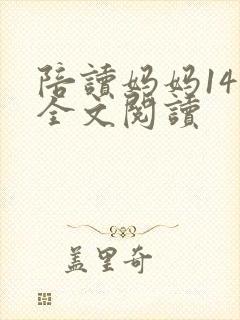 陪讀妈妈14
全文閱讀
盖里奇